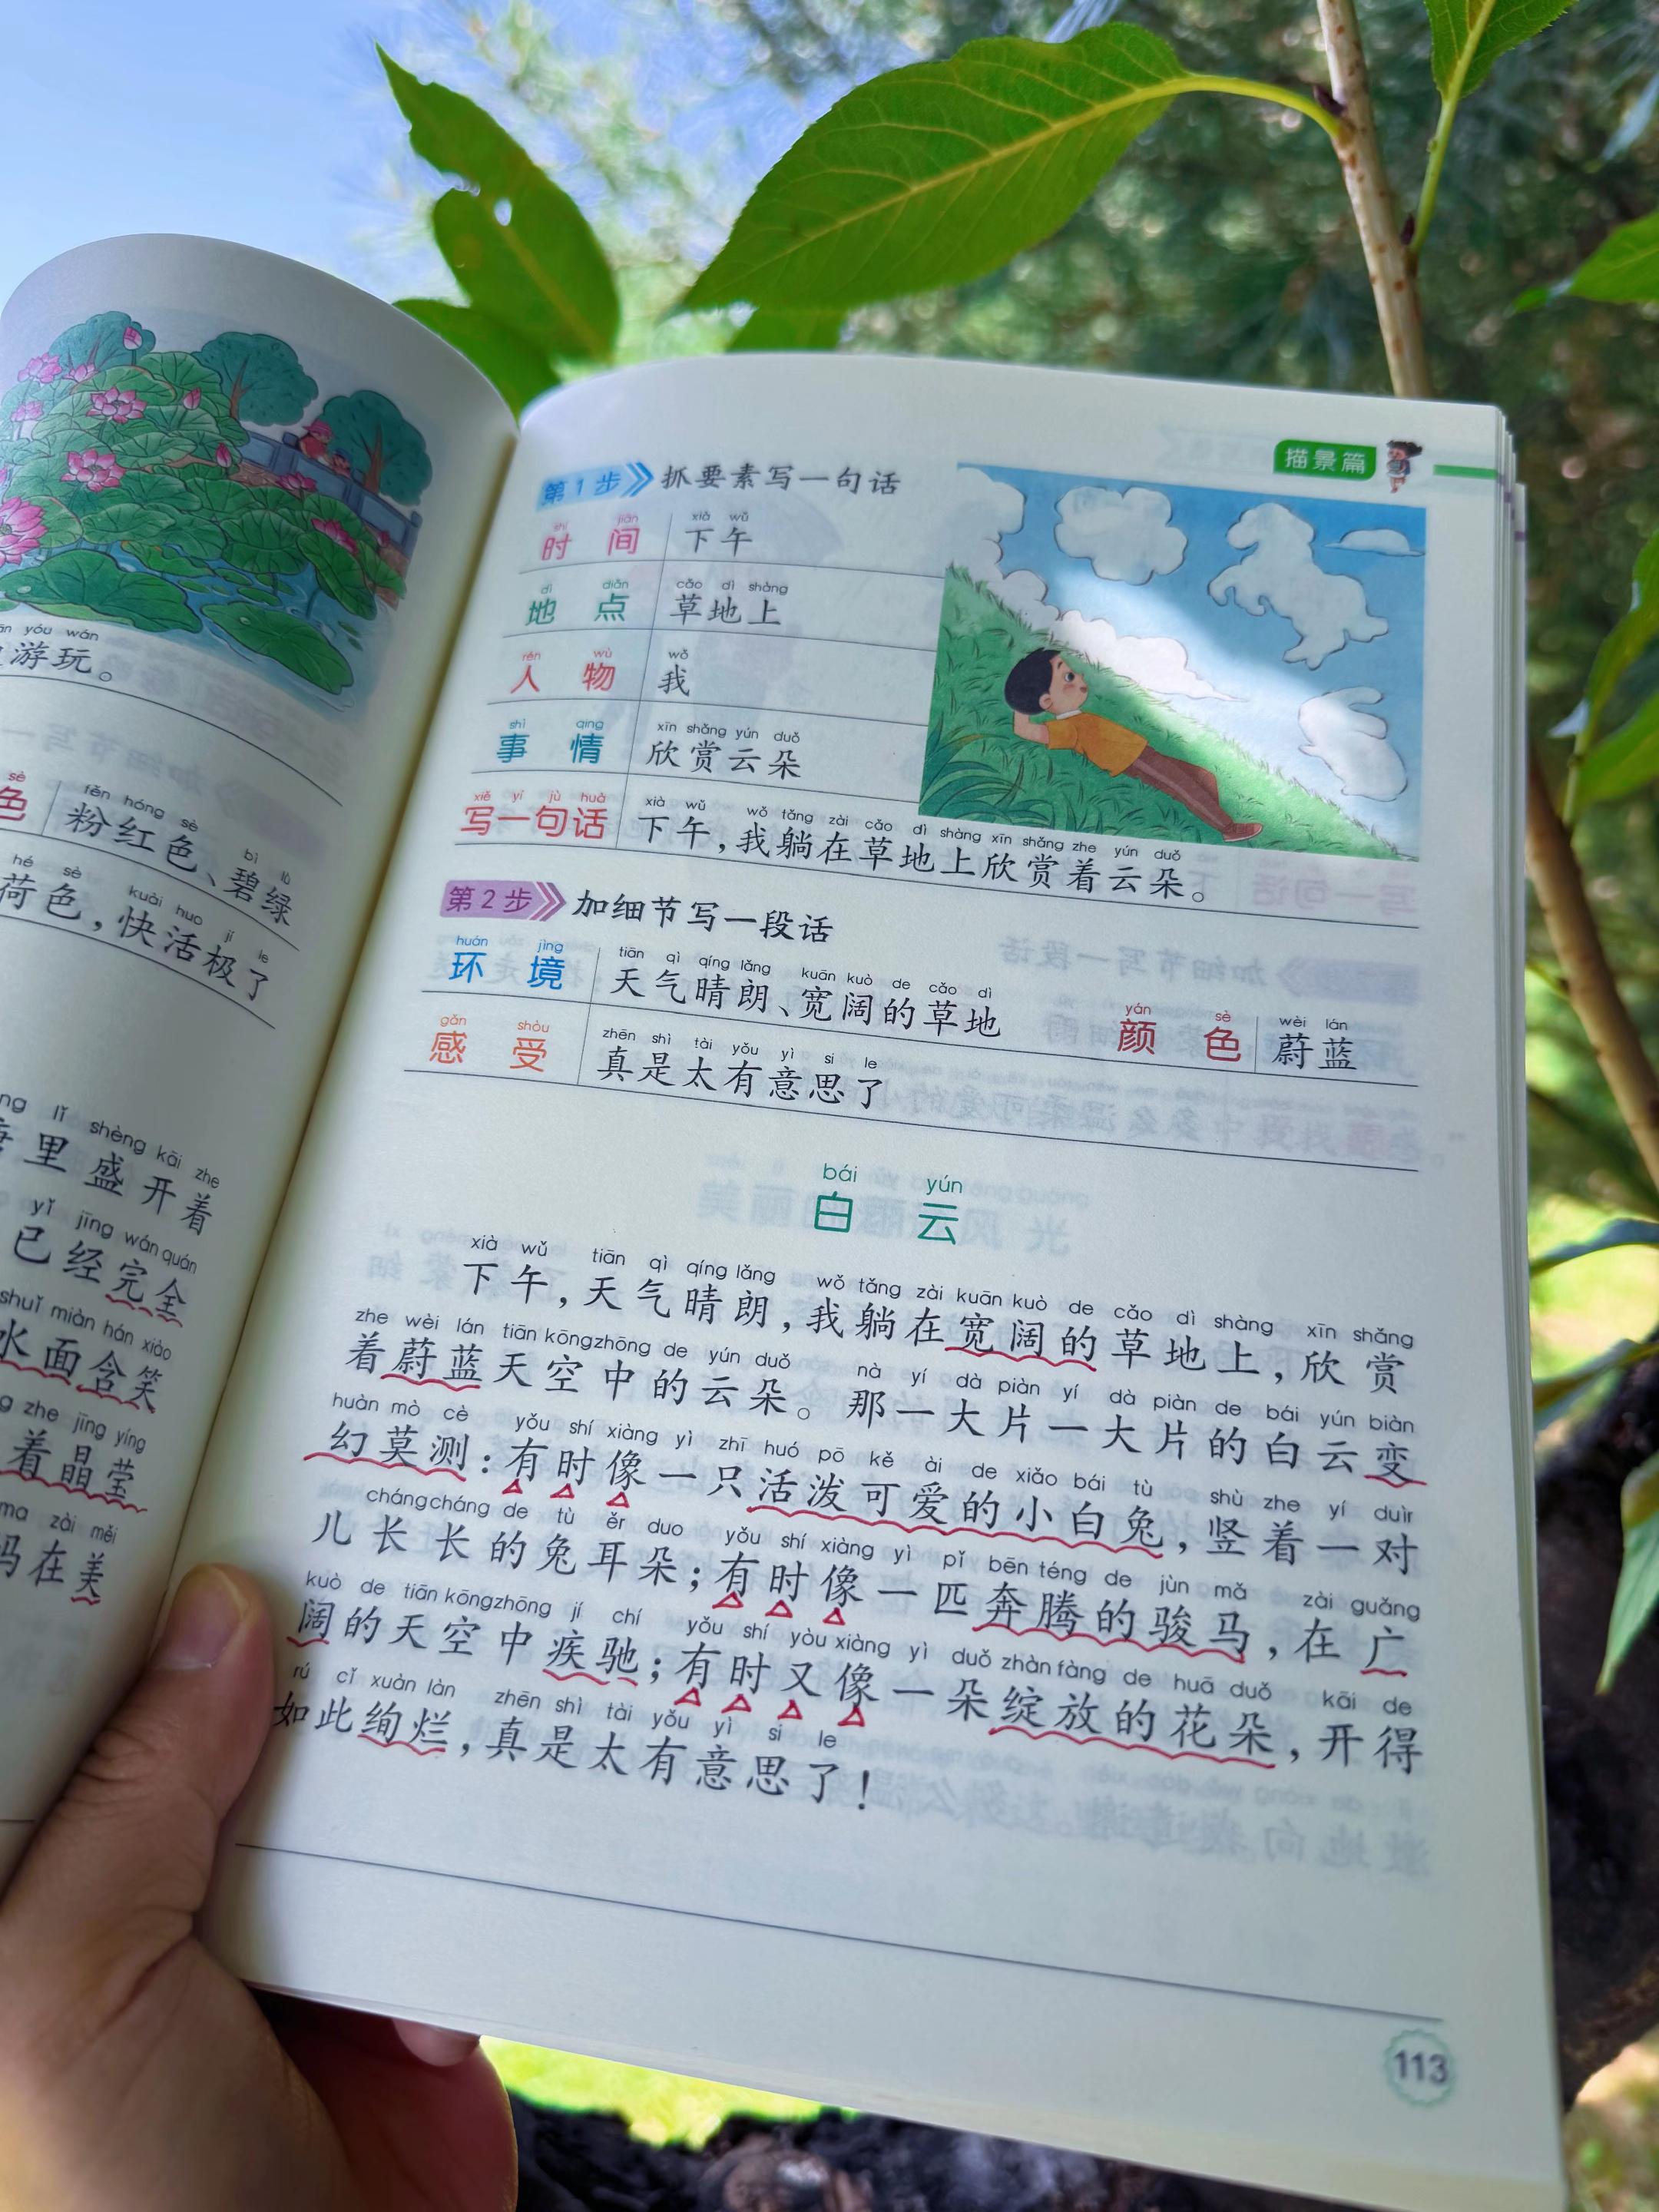 游玩。
yóu wán
sè
色
fěn hóng sè bì lǜ
粉红色、碧绿
hé sè kuài huo jí le
荷色，快活极了
lǐ shèng kāi zhe
里盛开着
yǐ jīng wán quán
已经完全
shuǐ miàn hán xiào
水面含笑
zhe jīng yíng
着晶莹
ma zài měi
妈在美
描景篇
第1步 抓要素写一句话
shí jiān xià wǔ
时间 下午
dì diǎn cǎo dì shàng
地点 草地上
rén wù wǒ
人物 我
shì qing xīn shǎng yún duǒ
事情 欣赏云朵
xiě yí jù huà xià wǔ wǒ tǎng zài cǎo dì shàng xīn shǎng zhe yún duǒ
写一句话 下午，我躺在草地上欣赏着云朵。
第2步 加细节写一段话
huán jìng tiān qì qíng lǎng kuān kuò de cǎo dì yán sè wèi lán
环境 天气晴朗、宽阔的草地 颜色 蔚蓝
gǎn shòu zhēn shì tài yǒu yì si le
感受 真是太有意思了
bái yún
白云
xià wǔ tiān qì qíng lǎng wǒ tǎng zài kuān kuò de cǎo dì shàng xīn shǎng
下午，天气晴朗，我躺在宽阔的草地上，欣赏
zhe wèi lán tiān kōng zhōng de yún duǒ nà yí dà piàn yí dà piàn de bái yún biàn
着蔚蓝天空中的云朵。那一大片一大片的白云变
huàn mò cè yǒu shí xiàng yì zhī huó pō kě ài de xiǎo bái tù shù zhe yí duìr
幻莫测：有时像一只活泼可爱的小白兔，竖着一对
cháng cháng de tù ěr duo yǒu shí xiàng yì pǐ bēn téng de jùn mǎ zài guǎng
儿长长的兔耳朵；有时像一匹奔腾的骏马，在广
kuò de tiān kōng zhōng jí chí yǒu shí yòu xiàng yì duǒ zhàn fàng de huā duǒ kāi de
阔的天空中疾驰；有时又像一朵绽放的花朵，开得
rú cǐ xuàn làn zhēn shì tài yǒu yì si le
如此绚烂，真是太有意思了！
113